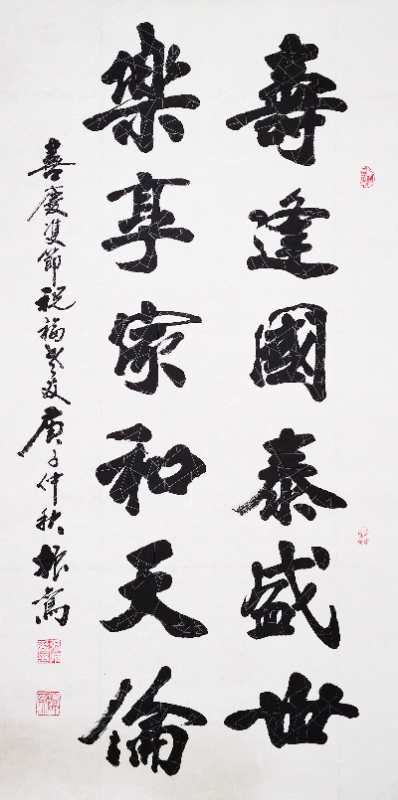 壽逢國泰盛世
樂享家和天倫
喜慶雙節祝福老友庚子仲秋振寫